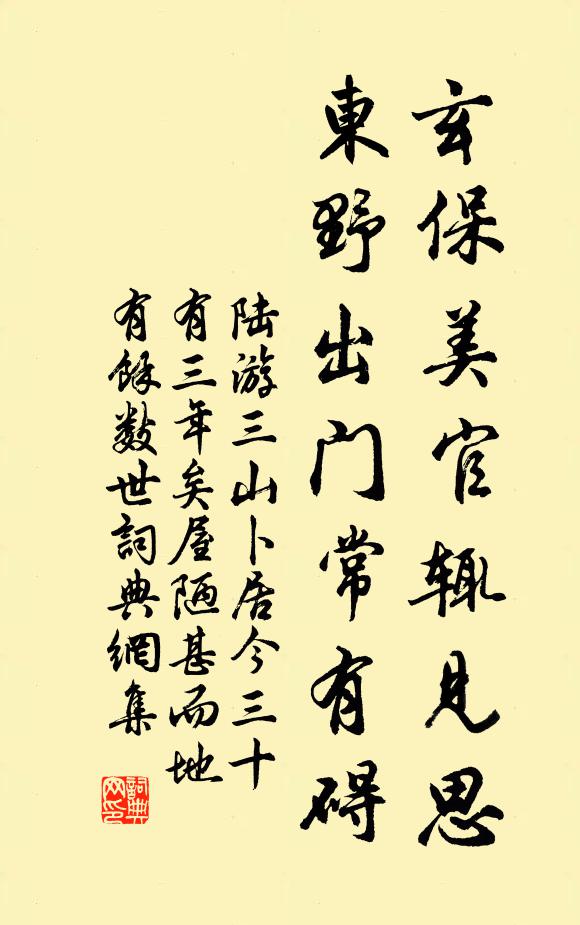 玄保美官辄見思
東野出門常有碍
陆游三山卜居今三十
有三年矣屋陋甚而地
有餘数世詞典網集
詞典
网印